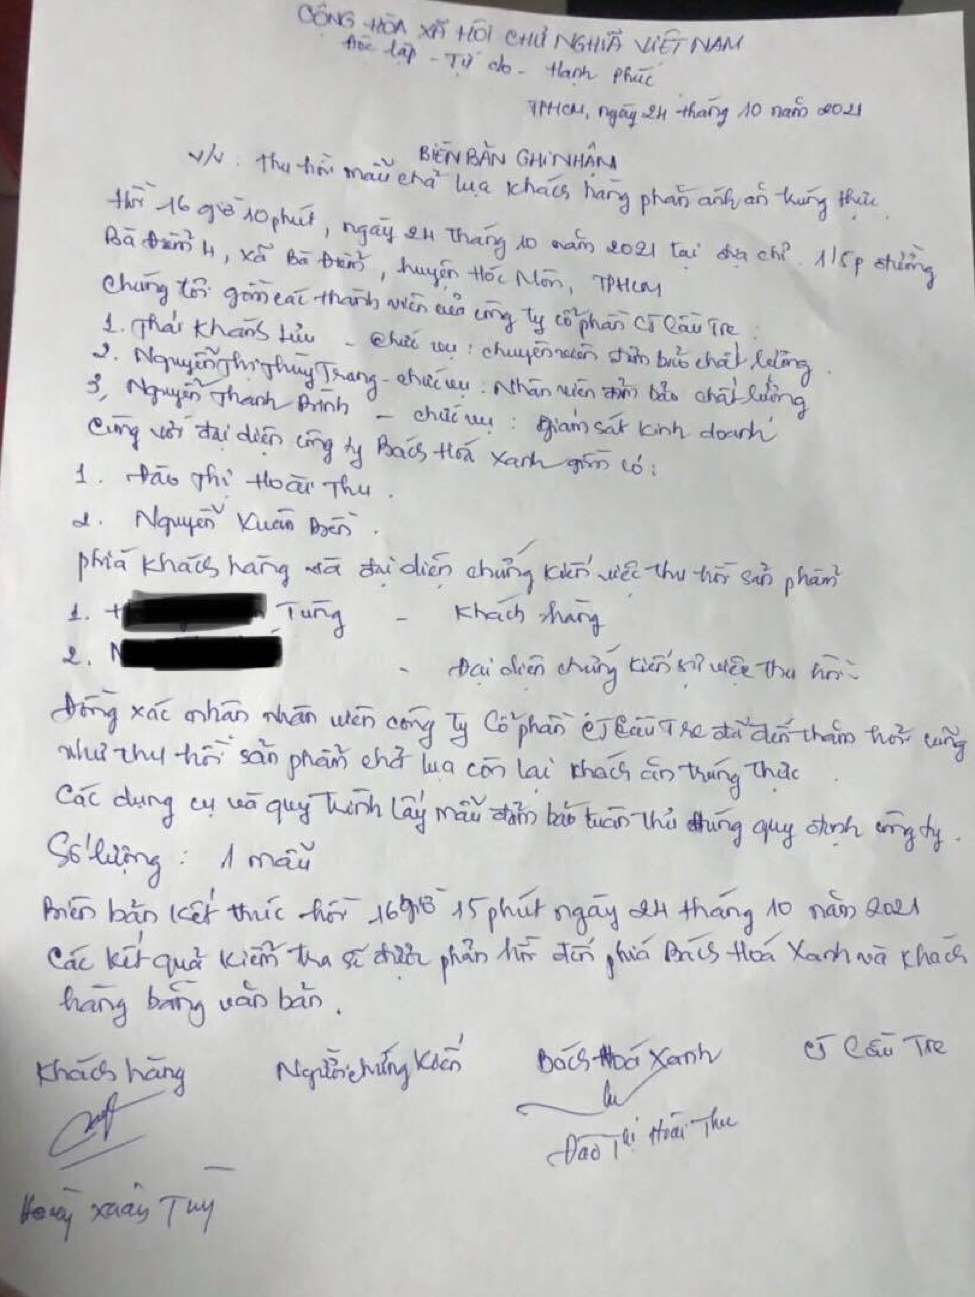 CỘNG HÒA XÃ HỘI CHỦ NGHĨA VIỆT NAM
Độc lập - Tự do - Hạnh phúc
TPHCM, ngày 24 tháng 10 năm 2021
BIÊN BẢN GHI NHẬN
V/v: Thu hồi mẫu chả lụa khách hàng phản ánh ăn trúng
Hồi 16 giờ 10 phút, ngày 24 tháng 10 năm 2021 tại địa chỉ. 1/5p đường
Bà Điểm 4, xã Bà Điểm, huyện Hóc Môn, TPHCM
Chúng tôi gồm các thành viên của công ty cổ phần CJ Cầu Tre.
1. Thái Khánh - chức vụ: chuyên viên đảm bảo chất lượng.
2. Nguyễn Thị Thùy Trang - chức vụ: Nhân viên đảm bảo chất lượng
3, Nguyễn Thanh Bình - chức vụ: Giám sát kinh doanh
Cùng với đại diện công ty Bách Hoá Xanh gồm có:
1. Đào Thị Hoài Thu.
2. Nguyễn Xuân
phía khách hàng và đại diện chứng kiến việc thu hồi sản phẩm
1. Tùng - Khách hàng
2. N - Đại diện chứng kiến sự việc thu hồi
Đồng xác nhận nhân viên công ty Cổ phần CJ Cầu Tre đã đến thăm hỏi cũng
như thu hồi sản phẩm chả lụa còn lại khách ăn trúng
Các dụng cụ và quy trình lấy mẫu đảm bảo tuân thủ đúng quy định công ty.
Số lượng: 1 mẫu
Biên bản kết thúc hồi 16 giờ 15 phút ngày 24 tháng 10 năm 2021
Các kết quả kiểm tra sẽ được phản hồi đến phía Bách Hoá Xanh và khách
hàng bằng văn bản.
Khách hàng Người chứng kiến Bách Hoá Xanh CJ Cầu Tre
Đào Thị Hoài Thu
Xuân